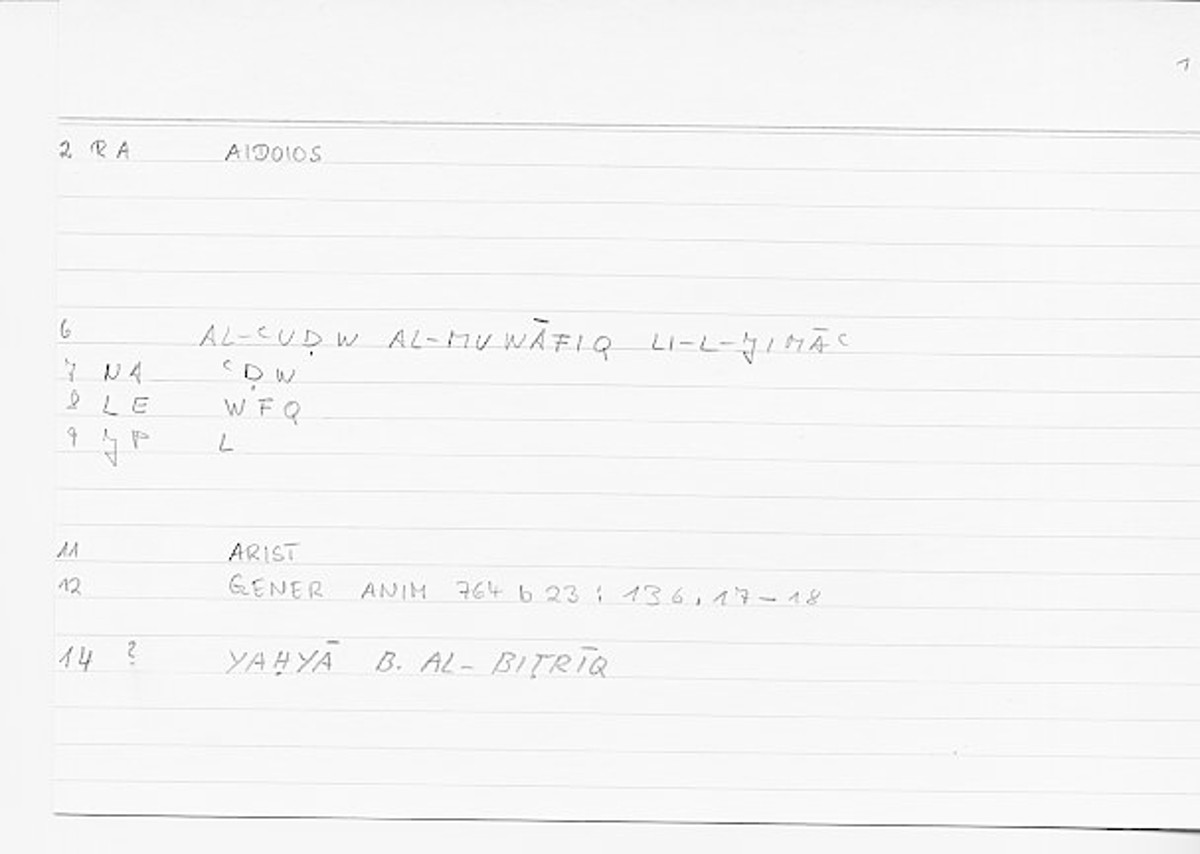 1
2 RA AIDOIOS
6 AL-ʿUḌW AL-MUWĀFIQ LI-L-JIMĀʿ
7 NA ʿḌW
8 LE WFQ
9 JP L
11 ARIST
12 GENER ANIM 764 b 23 : 136, 17-18
14 ? YAḤYĀ B. AL-BIṬRĪQ